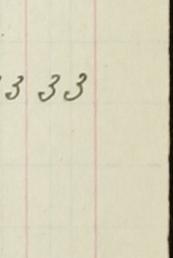 3 33